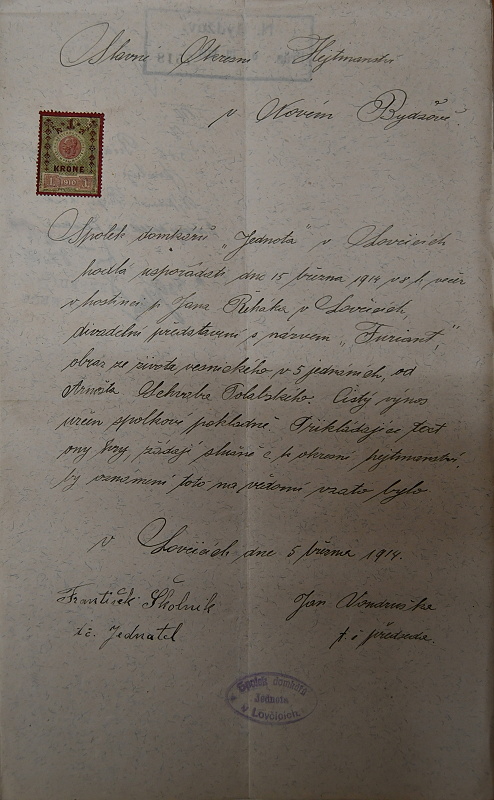 Slavné Okresní Hejtmanství
v Novém Bydžově.
1
KRONE
1 1910 1
Spolek domkářů „Jednota" v Lovčicích
hodlá uspořádati dne 15 března 1914 v 8 h. večer
v hostinci p. Jana Řeháka v Lovčicích,
divadelní představení s názvem „Furiant",
obraz ze života vesnického v 5 jednáních, od
Arnošta Schwaba Polabského. Čistý výnos
určen spolkové pokladně. Přikládajíce text
ony hry, žádají slušně c. k. okresní hejtmanství,
by oznámení toto na vědomí vzato bylo
V Lovčicích dne 5 března 1914.
František Školník
t. č. Jednatel
Jan Vondruška
t. č. předseda.
Spolek domkářů
Jednota
v Lovčicích